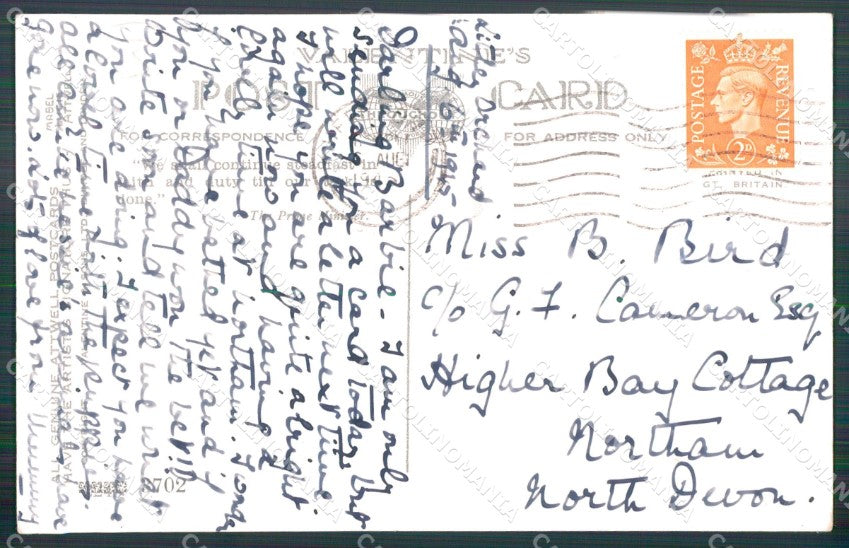 VALENTINE'S
POST CARD
FOR CORRESPONDENCE
FOR ADDRESS ONLY
"We shall continue steadfast in
faith and duty till our task is
done."
The Prime Minister.
POSTAGE REVENUE
2D
PRINTED IN
GT. BRITAIN
AUG
1945
Orchard
Aug 6th 1945
Darling Barbie - I am only
sending you a card today but
will write a letter next time.
I hope you are quite alright
again now and having a
lovely time at Northam. I wonder
if you have betted yet and if
you or Daddy won the bet!!!
Write soon and tell me what
you are doing. I expect you have
a lovely time with the puppies.
all
Lots of love from Mummy
Miss B. Bird
c/o G. F. Cameron Esq
Higher Bay Cottage
Northam
North Devon.
ALL GENUINE ATTWELL POSTCARDS
MABEL
ATTWELL
2702
CARTOLINOMANIA